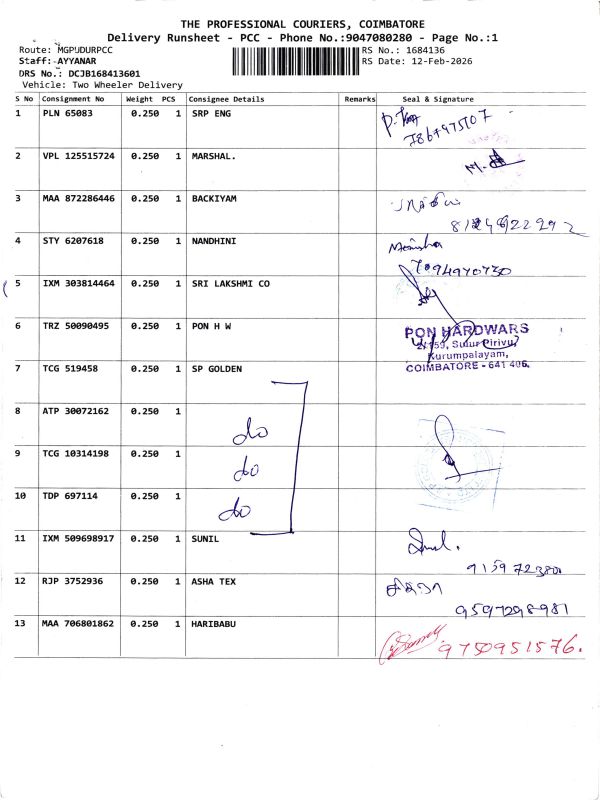 THE PROFESSIONAL COURIERS, COIMBATORE
Delivery Runsheet - PCC - Phone No.:9047080280 - Page No.:1
Route: MGPUDURPCC
RS No.: 1684136
Staff: AYYANAR
RS Date: 12-Feb-2026
DRS No.: DCJB168413601
Vehicle: Two Wheeler Delivery
S No Consignment No Weight PCS Consignee Details Remarks Seal & Signature
1 PLN 65083 0.250 1 SRP ENG
2 VPL 125515724 0.250 1 MARSHAL.
3 MAA 872286446 0.250 1 BACKIYAM
4 STY 6207618 0.250 1 NANDHINI Manisha
7094970730
5 IXM 303814464 0.250 1 SRI LAKSHMI CO
6 TRZ 50090495 0.250 1 PON H W
PON HARDWARS
Sulur Pirivu,
Kurumpalayam,
COIMBATORE - 641 406.
7 TCG 519458 0.250 1 SP GOLDEN
8 ATP 30072162 0.250 1 do
9 TCG 10314198 0.250 1 do
10 TDP 697114 0.250 1 do
11 IXM 509698917 0.250 1 SUNIL
915972380
12 RJP 3752936 0.250 1 ASHA TEX
9597298981
13 MAA 706801862 0.250 1 HARIBABU 9750951576.